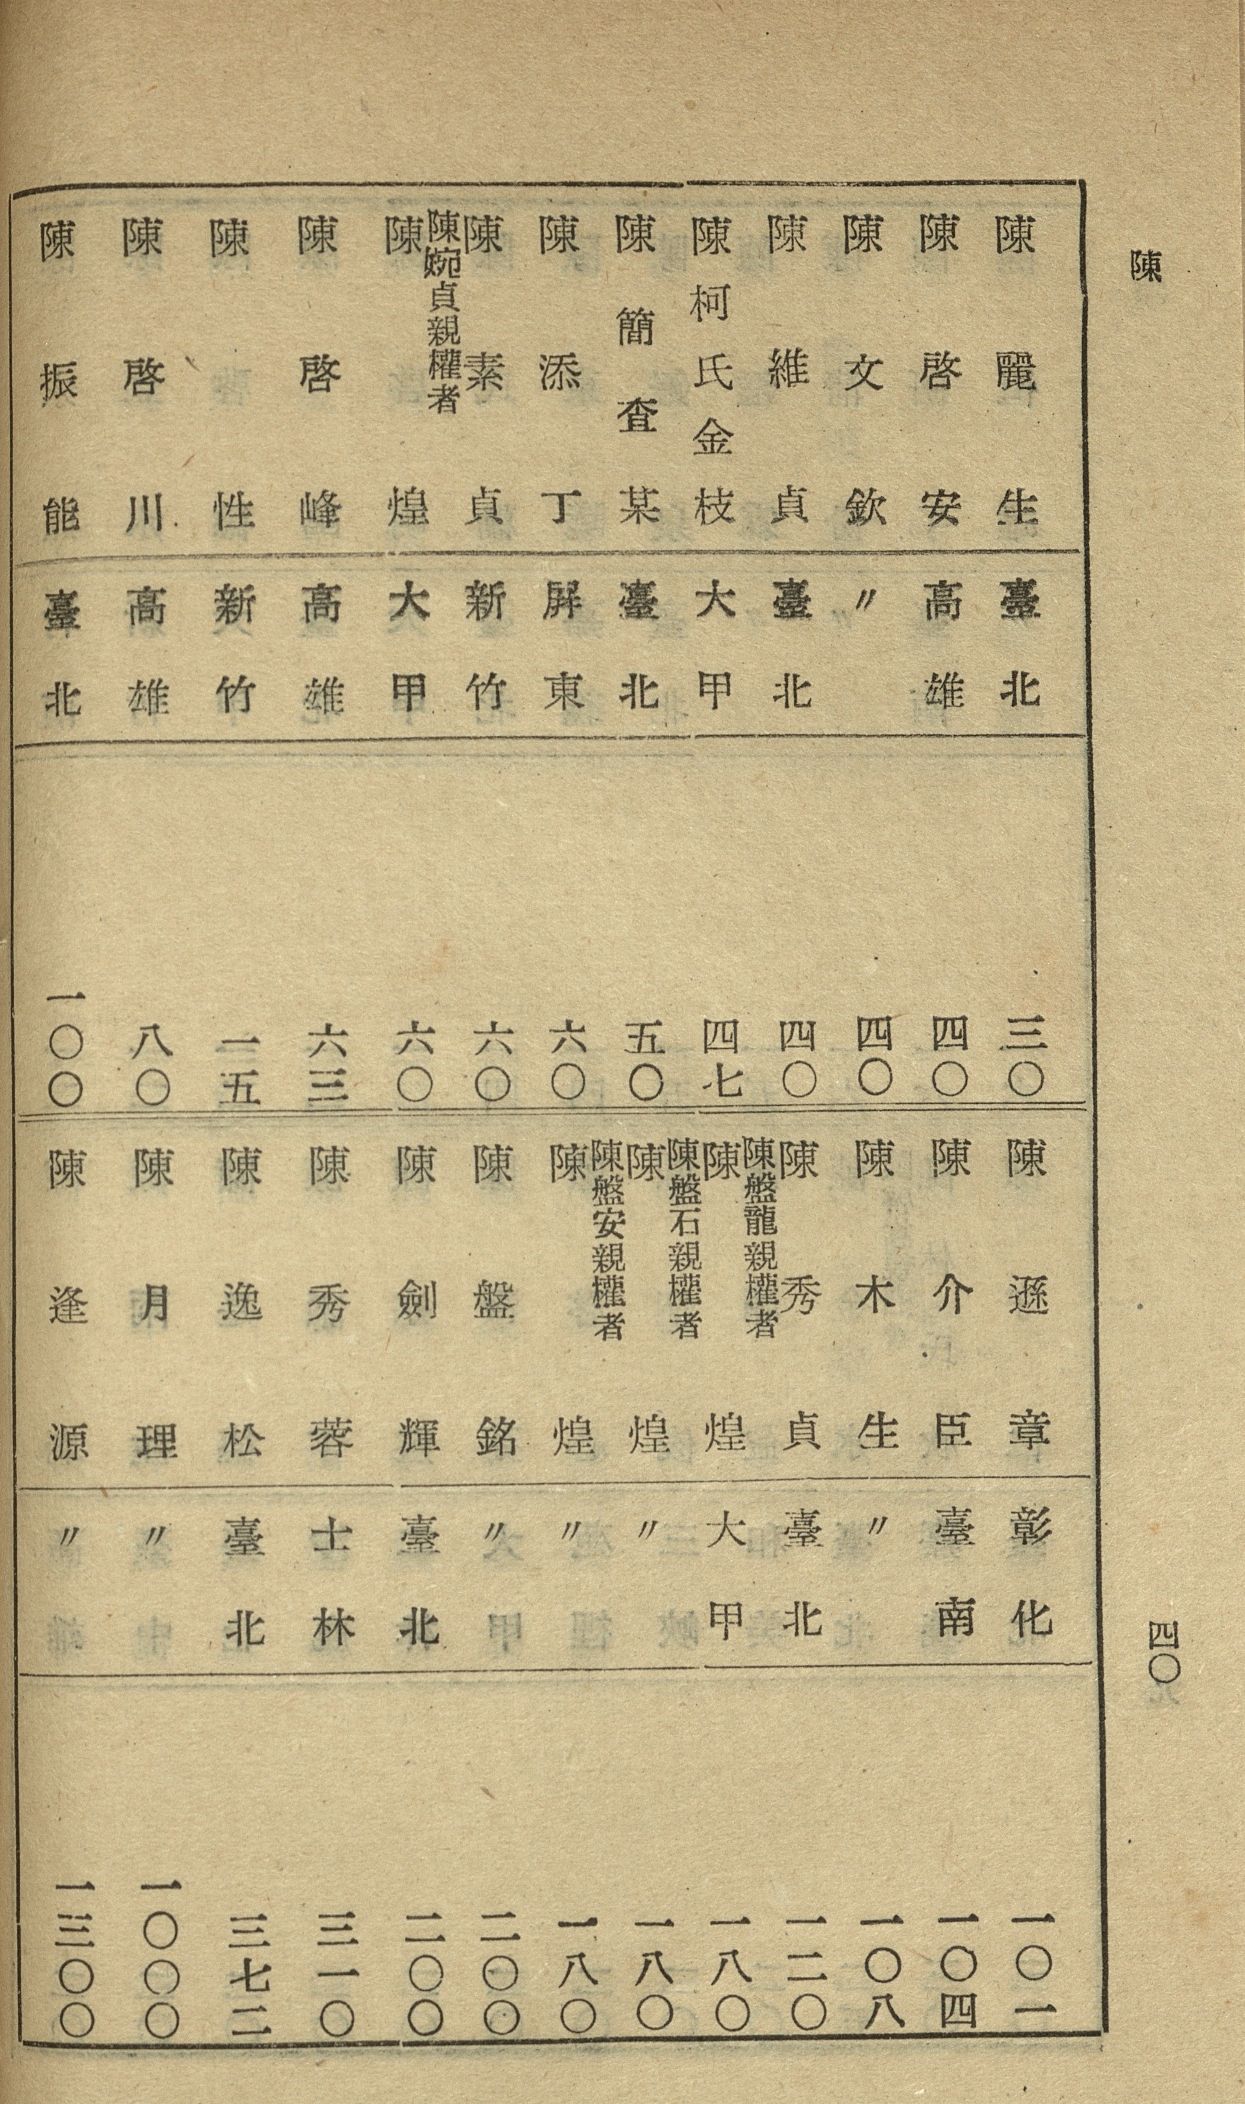 陳
四〇
陳麗生 臺北 三〇
陳啓安 高雄 四〇
陳文欽 〃 四〇
陳維貞 臺北 四〇
陳柯氏金枝 大甲 四七
陳簡査某 臺北 五〇
陳添丁 屏東 六〇
陳素貞 新竹 六〇
陳婉貞親權者
陳煌 大甲 六〇
陳啓峰 高雄 六三
陳性 新竹 一五
陳啓川 高雄 八〇
陳振能 臺北 一〇〇
陳遜章 彰化 一〇一
陳介臣 臺南 一〇四
陳木生 〃 一〇八
陳秀貞 臺北 一二〇
陳盤龍親權者
陳煌 大甲 一八〇
陳盤石親權者
陳煌 〃 一八〇
陳盤安親權者
陳煌 〃 一八〇
陳盤銘 〃 二〇〇
陳劍輝 臺北 二〇〇
陳秀蓉 士林 三一〇
陳逸松 臺北 三七二
陳月理 〃 一〇〇〇
陳逢源 〃 一三〇〇